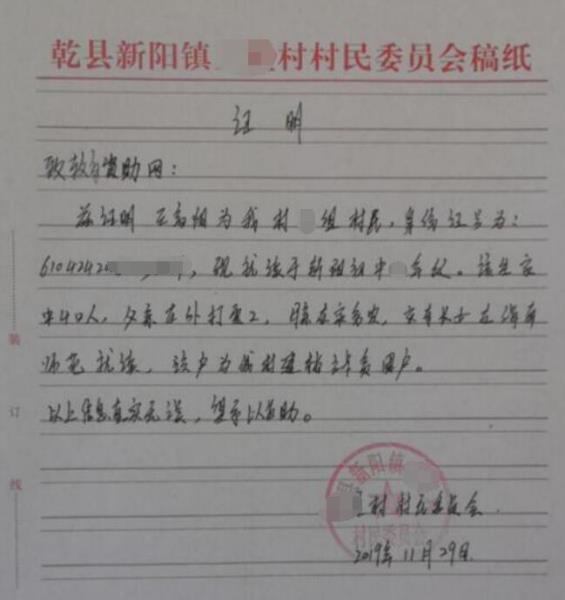 乾县新阳镇 村村民委员会稿纸
证 明
致教育资助网：
兹证明 王 阳为我村 组村民，身份证号为：
6104242 ，现就读于新阳初中 年级。该生家
中4口人，父亲在外打零工，母亲在家务农， 在海南
师范就读，该户为我村建档立卡贫困户。
以上信息真实无误，望予以资助。
村村民委员会
2019年11月29日
县新阳镇
村民委员会
装
订
线